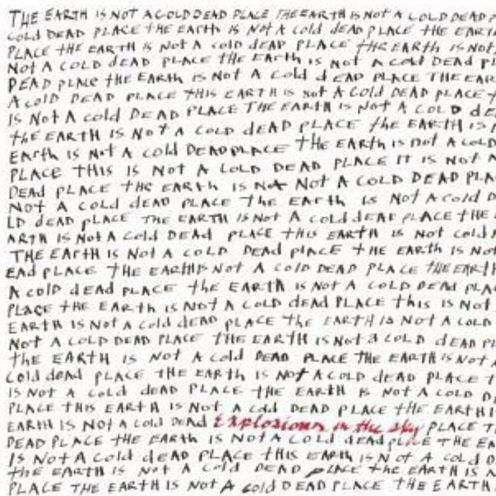 THE EARTH IS NOT A COLD DEAD PLACE THE EARTH IS NOT A COLD DEAD P
COLD DEAD PLACE THE EARTH IS NOT A COLD DEAD PLACE THE EART
PLACE THE EARTH IS NOT A COLD DEAD PLACE THE EARTH IS NOT
NOT A COLD DEAD PLACE THE EARTH IS NOT A COLD DEAD PL
DEAD PLACE THE EARTH IS NOT A COLD DEAD PLACE THE EAR
A COLD DEAD PLACE THIS EARTH IS NOT A COLD DEAD PLACE T
IS NOT A COLD DEAD PLACE THE EARTH IS NOT A COLD DE
THE EARTH IS NOT A COLD DEAD PLACE THE EARTH IS
EARTH IS NOT A COLD DEAD PLACE THE EARTH IS NOT A COLD
PLACE THIS IS NOT A COLD DEAD PLACE IT IS NOT A
DEAD PLACE THE EARTH IS NOT NOT A COLD DEAD PLA
NOT A COLD DEAD PLACE THE EARTH IS NOT A COLD D
LD DEAD PLACE THE EARTH IS NOT A COLD DEAD PLACE THE
ARTH IS NOT A COLD DEAD PLACE THIS EARTH IS NOT COLD
THE EARTH IS NOT A COLD DEAD PLACE THE EARTH IS NOT
EAD PLACE THE EARTH IS NOT A COLD DEAD PLACE THE EARTH
A COLD DEAD PLACE THE EARTH IS NOT A COLD DEAD PLA
PLACE THE EARTH IS NOT A COLD DEAD PLACE THIS IS NOT
EARTH IS NOT A COLD DEAD PLACE THE EARTH IS NOT A COLD
NOT A COLD DEAD PLACE THE EARTH IS NOT A COLD DEAD PL
THE EARTH IS NOT A COLD DEAD PLACE THE EARTH IS NOT A
COLD DEAD PLACE THE EARTH IS NOT A COLD DEAD PLACE T
IS NOT A COLD DEAD PLACE THE EARTH IS NOT A COLD D
PLACE THIS EARTH IS NOT A COLD DEAD PLACE THE EARTH I
EARTH IS NOT A COLD DEAD Explosions in the sky PLACE T
DEAD PLACE THE EARTH IS NOT A COLD DEAD PLACE THE EA
IS NOT A COLD DEAD PLACE THIS EARTH IS NOT A COLD
THE EARTH IS NOT A COLD DEAD PLACE THE EARTH IS N
PLACE THE EARTH IS NOT A COLD DEAD PLACE THE EARTH